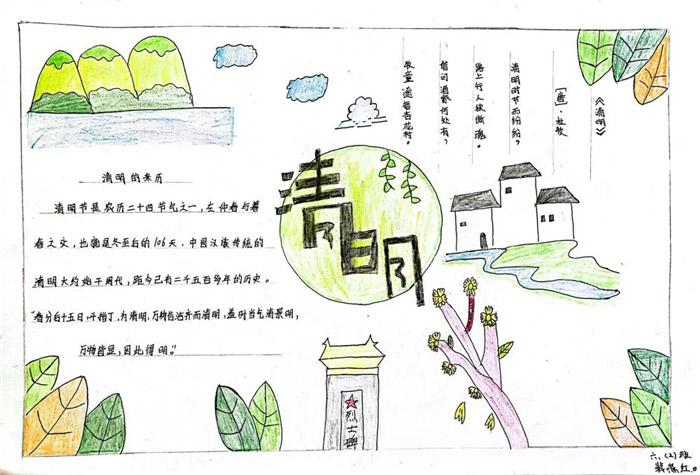 《清明》
[唐]·杜牧
清明时节雨纷纷,
路上行人欲断魂。
借问酒家何处有,
牧童遥指杏花村。
清明的来历
清明节是农历二十四节气之一,在仲春与暮
春之交,也就是冬至后的106天,中国汉族传统的
清明大约始于周代,距今已有二千五百多年的历史。
"春分后十五日,斗指丁,为清明,万物皆洁齐而清明,盖时当气清景明,
万物皆显,因此得明。"
清明
烈士碑
六、(2)班